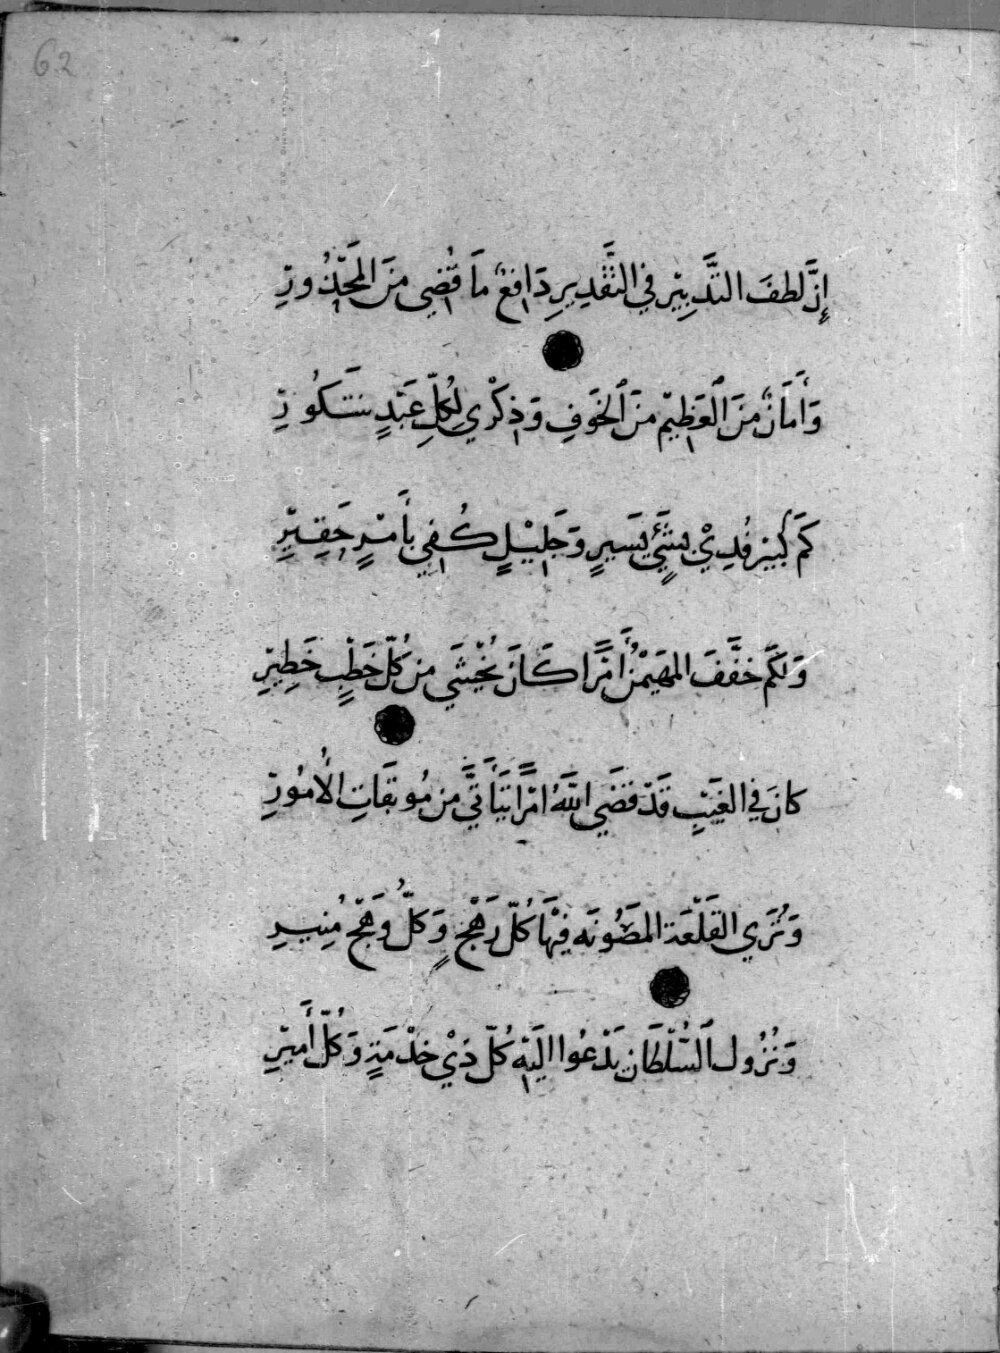 62
إِنَّ لُطفَ التَّدْبِيْرِ فِي التَّقْدِيرِ دَافِعٌ مَا قُضِي مِنَ المَحْذُورِ
وَأَمَانٌ مِنَ العَظِيْمِ مِنَ الخَوفِ وَذِكْرِي لِكُلِّ عَبْدٍ شَكُورِ
كَمْ كَبِيْرٍ فُدِيْ بِشَيْءٍ يَسِيرٍ وَجَلِيْلٍ كُفِي بِأَمْرٍ حَقِيْرِ
وَلَكَمْ خَفَّفَ المُهَيْمِنُ أَمْرًا كَانَ يُخْشَي مِن كُلِّ خَطْبٍ خَطِيْرِ
كانَ فِي الغَيْبِ قَدْ قَضَي اللَّهُ امْرًا يَتَأَتَّي مِن مُوبِقَاتِ الأُمُورِ
وَتُرَي القَلْعَة المَصُونَه فِيْهَا كُلّ رَهْجٍ وَكُلُّ وَهْجٍ مُنِيرِ
وَنُزُول السُّلْطَان يَدْعُوا الَيْهِ كُلّ ذِيْ خِدْمَةٍ وَكُلّ أَمِيْرِ